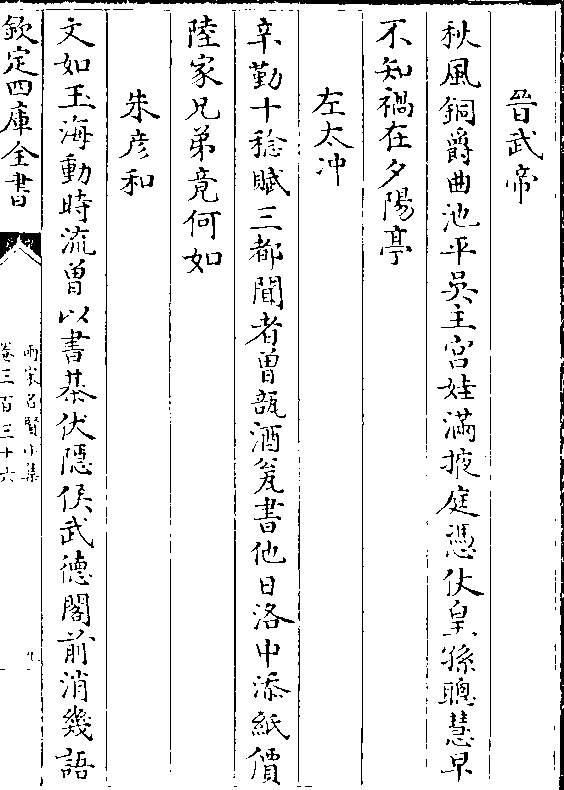 晉武帝
秋風銅爵曲池平吳主宮娃滿掖庭憑仗皇孫聰慧早
不知禍在夕陽亭
左太冲
辛勤十稔賦三都聞者曾嗤酒瓮書他日洛中添紙價
陸家兄弟竟何如
朱彥和
文如玉海動時流曾以書棊伏隱侯武德閣前消幾語
欽定四庫全書
兩宋名賢小集
卷三百三十六